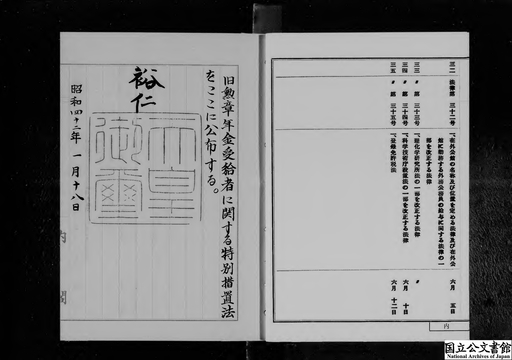 三二 法律第 三十二号 「在外公館の名称及び位置を定める法律及び在外公
館に勤務する外務公務員の給与に関する法律の一
部を改正する法律 六月 五日
三三 〃 第 三十三号 「理化学研究所法の一部を改正する法律 〃
三四 〃 第 三十四号 「科学技術庁設置法の一部を改正する法律 六月 十日
三五 〃 第 三十五号 「登録免許税法 六月 十二日
内
旧勲章年金受給者に関する特別措置法
をここに公布する。
裕仁
天皇
御璽
昭和四十二年 一月十八日
内閣
国立公文書館
National Archives of Japan